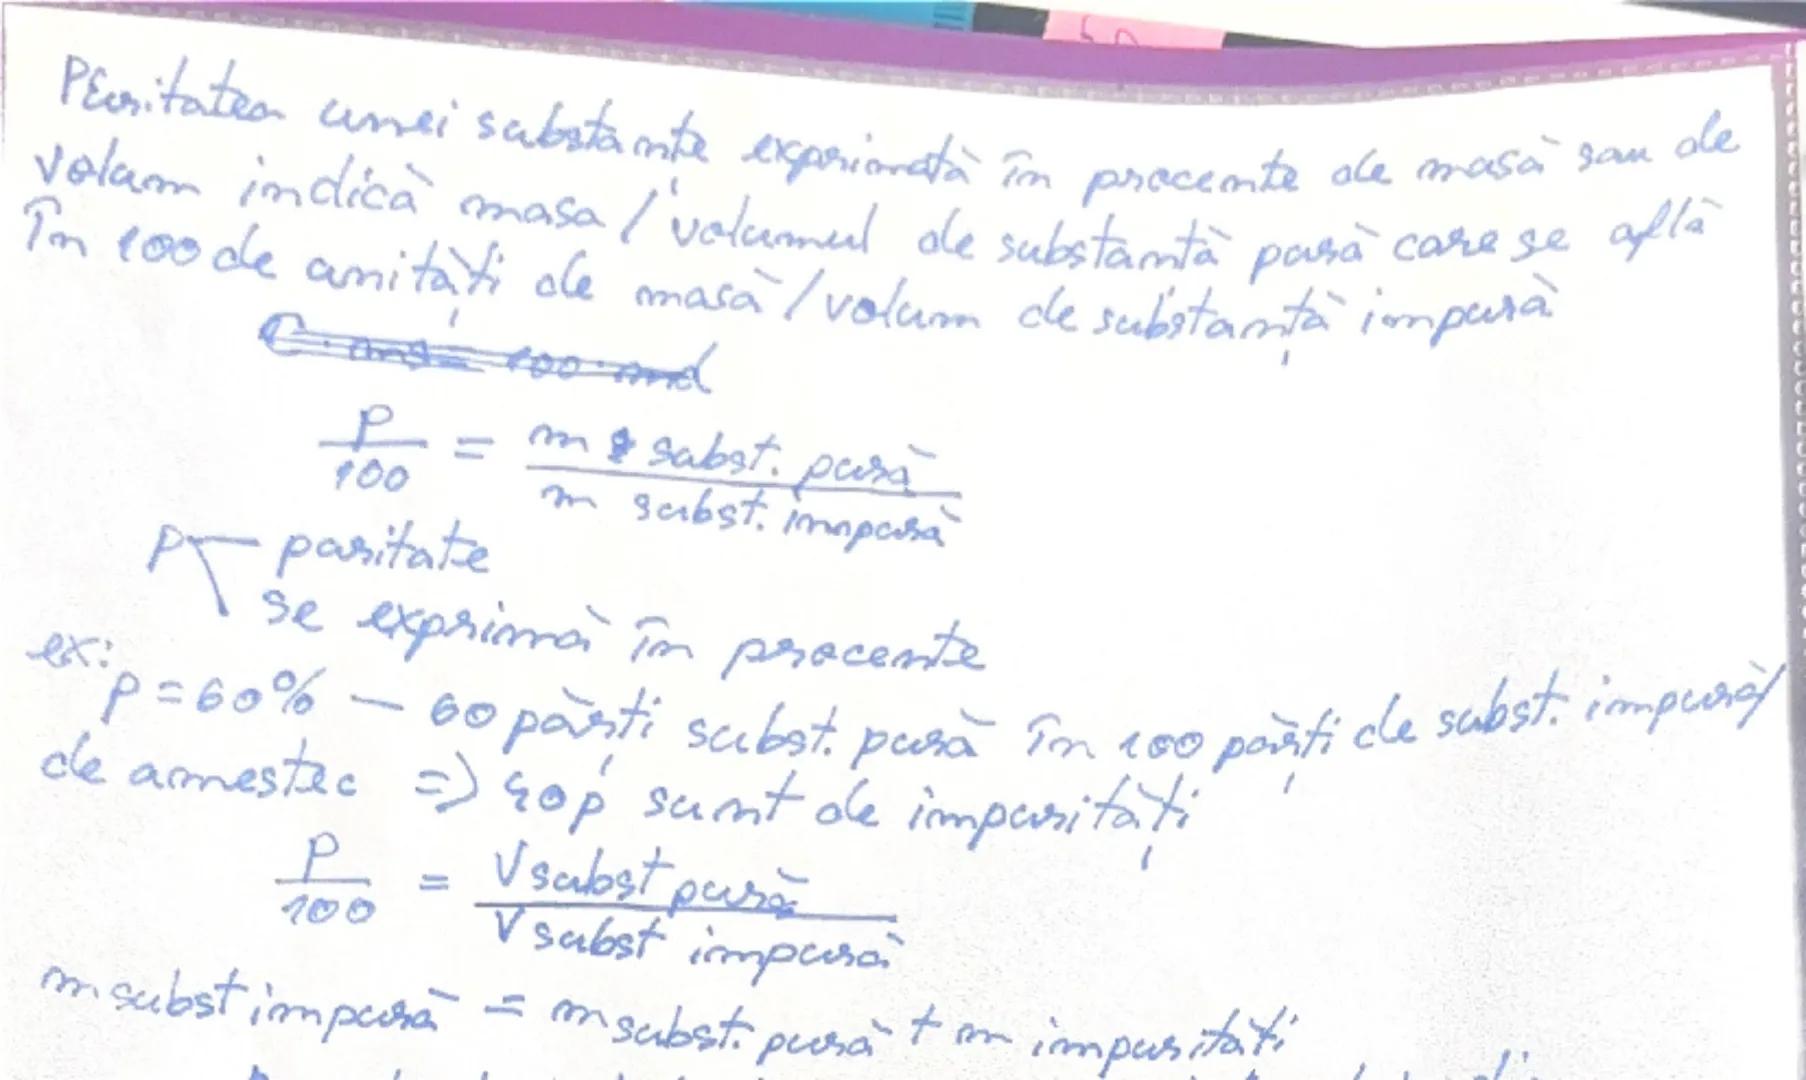 Puritatea unei substanțe exprimată în procente de masă sau de
volum indică masa / volumul de substanță pură care se află
în 100 de unități de masă / volum de substanță impură
C · ms = 100 · md
p/100 = m subst. pură / m subst. impură
p — puritate
se exprimă în procente
ex:
p = 60% — 60 părți subst. pură în 100 părți de subst. impură/
de amestec => 40 p sunt de impurități
p/100 = V subst pură / V subst impură
m subst impură = m subst. pură + m impurități